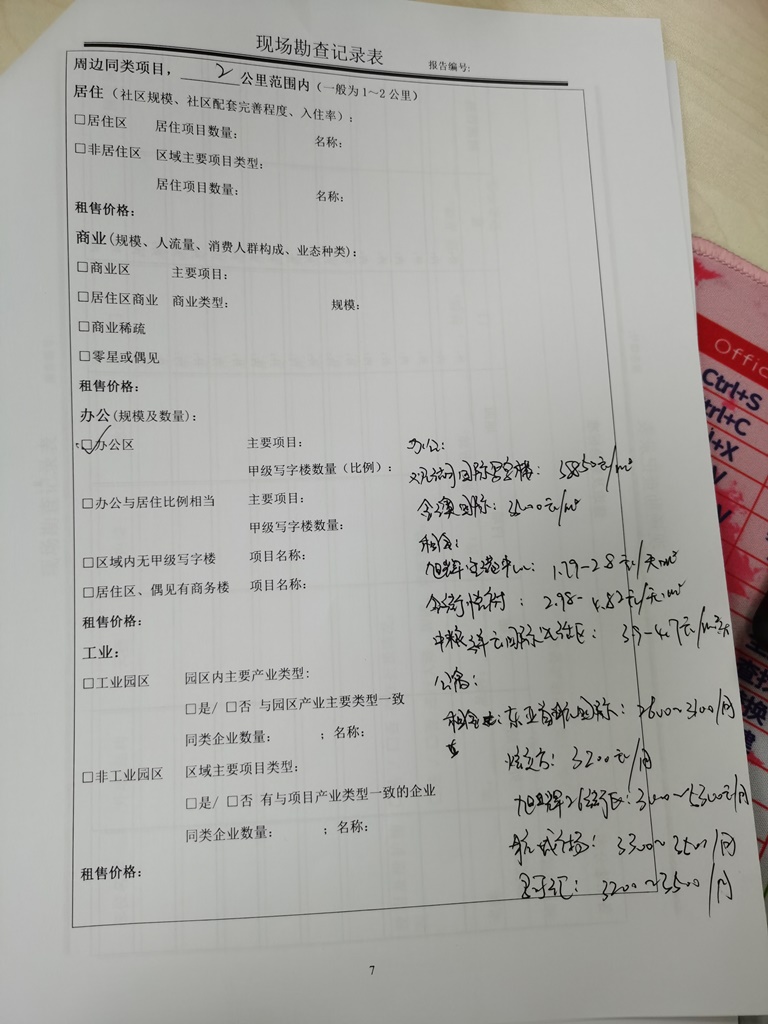 现场勘查记录表
报告编号:
周边同类项目，2公里范围内（一般为1～2公里）
居住（社区规模、社区配套完善程度、入住率）:
□居住区 居住项目数量: 名称:
□非居住区 区域主要项目类型:
居住项目数量: 名称:
租售价格:
商业(规模、人流量、消费人群构成、业态种类):
□商业区 主要项目:
□居住区商业 商业类型: 规模:
□商业稀疏
□零星或偶见
租售价格:
办公(规模及数量):
□办公区 主要项目: 办公:
甲级写字楼数量（比例）:
国际 : 38850元/m²
□办公与居住比例相当 主要项目:
国际: 元/m²
甲级写字楼数量:
租金:
□区域内无甲级写字楼 项目名称:
旭辉 中心: 1.79-2.8元/天m²
□居住区、偶见有商务楼 项目名称:
: 2.98-4.82元/天m²
租售价格:
中粮 国际 : 3.9-4.7元/m²天
工业:
□工业园区 园区内主要产业类型:
公寓:
□是/ □否 与园区产业主要类型一致
租金: 东亚首航国际: 2600~3100/月
同类企业数量: ；名称:
: 3200元/月
□非工业园区 区域主要项目类型:
□是/ □否 有与项目产业类型一致的企业
旭辉26街区: 3000~5300元/月
同类企业数量: ；名称:
广场: 3300~3500/月
租售价格:
汇: 3200~3500/月
7
Offic
Ctrl+S
trl+C
l+X
V
查找
替换
建